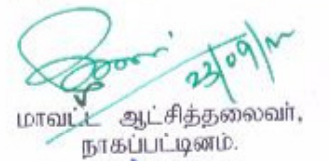 23/09/
மாவட்ட ஆட்சித்தலைவர்,
நாகப்பட்டினம்.